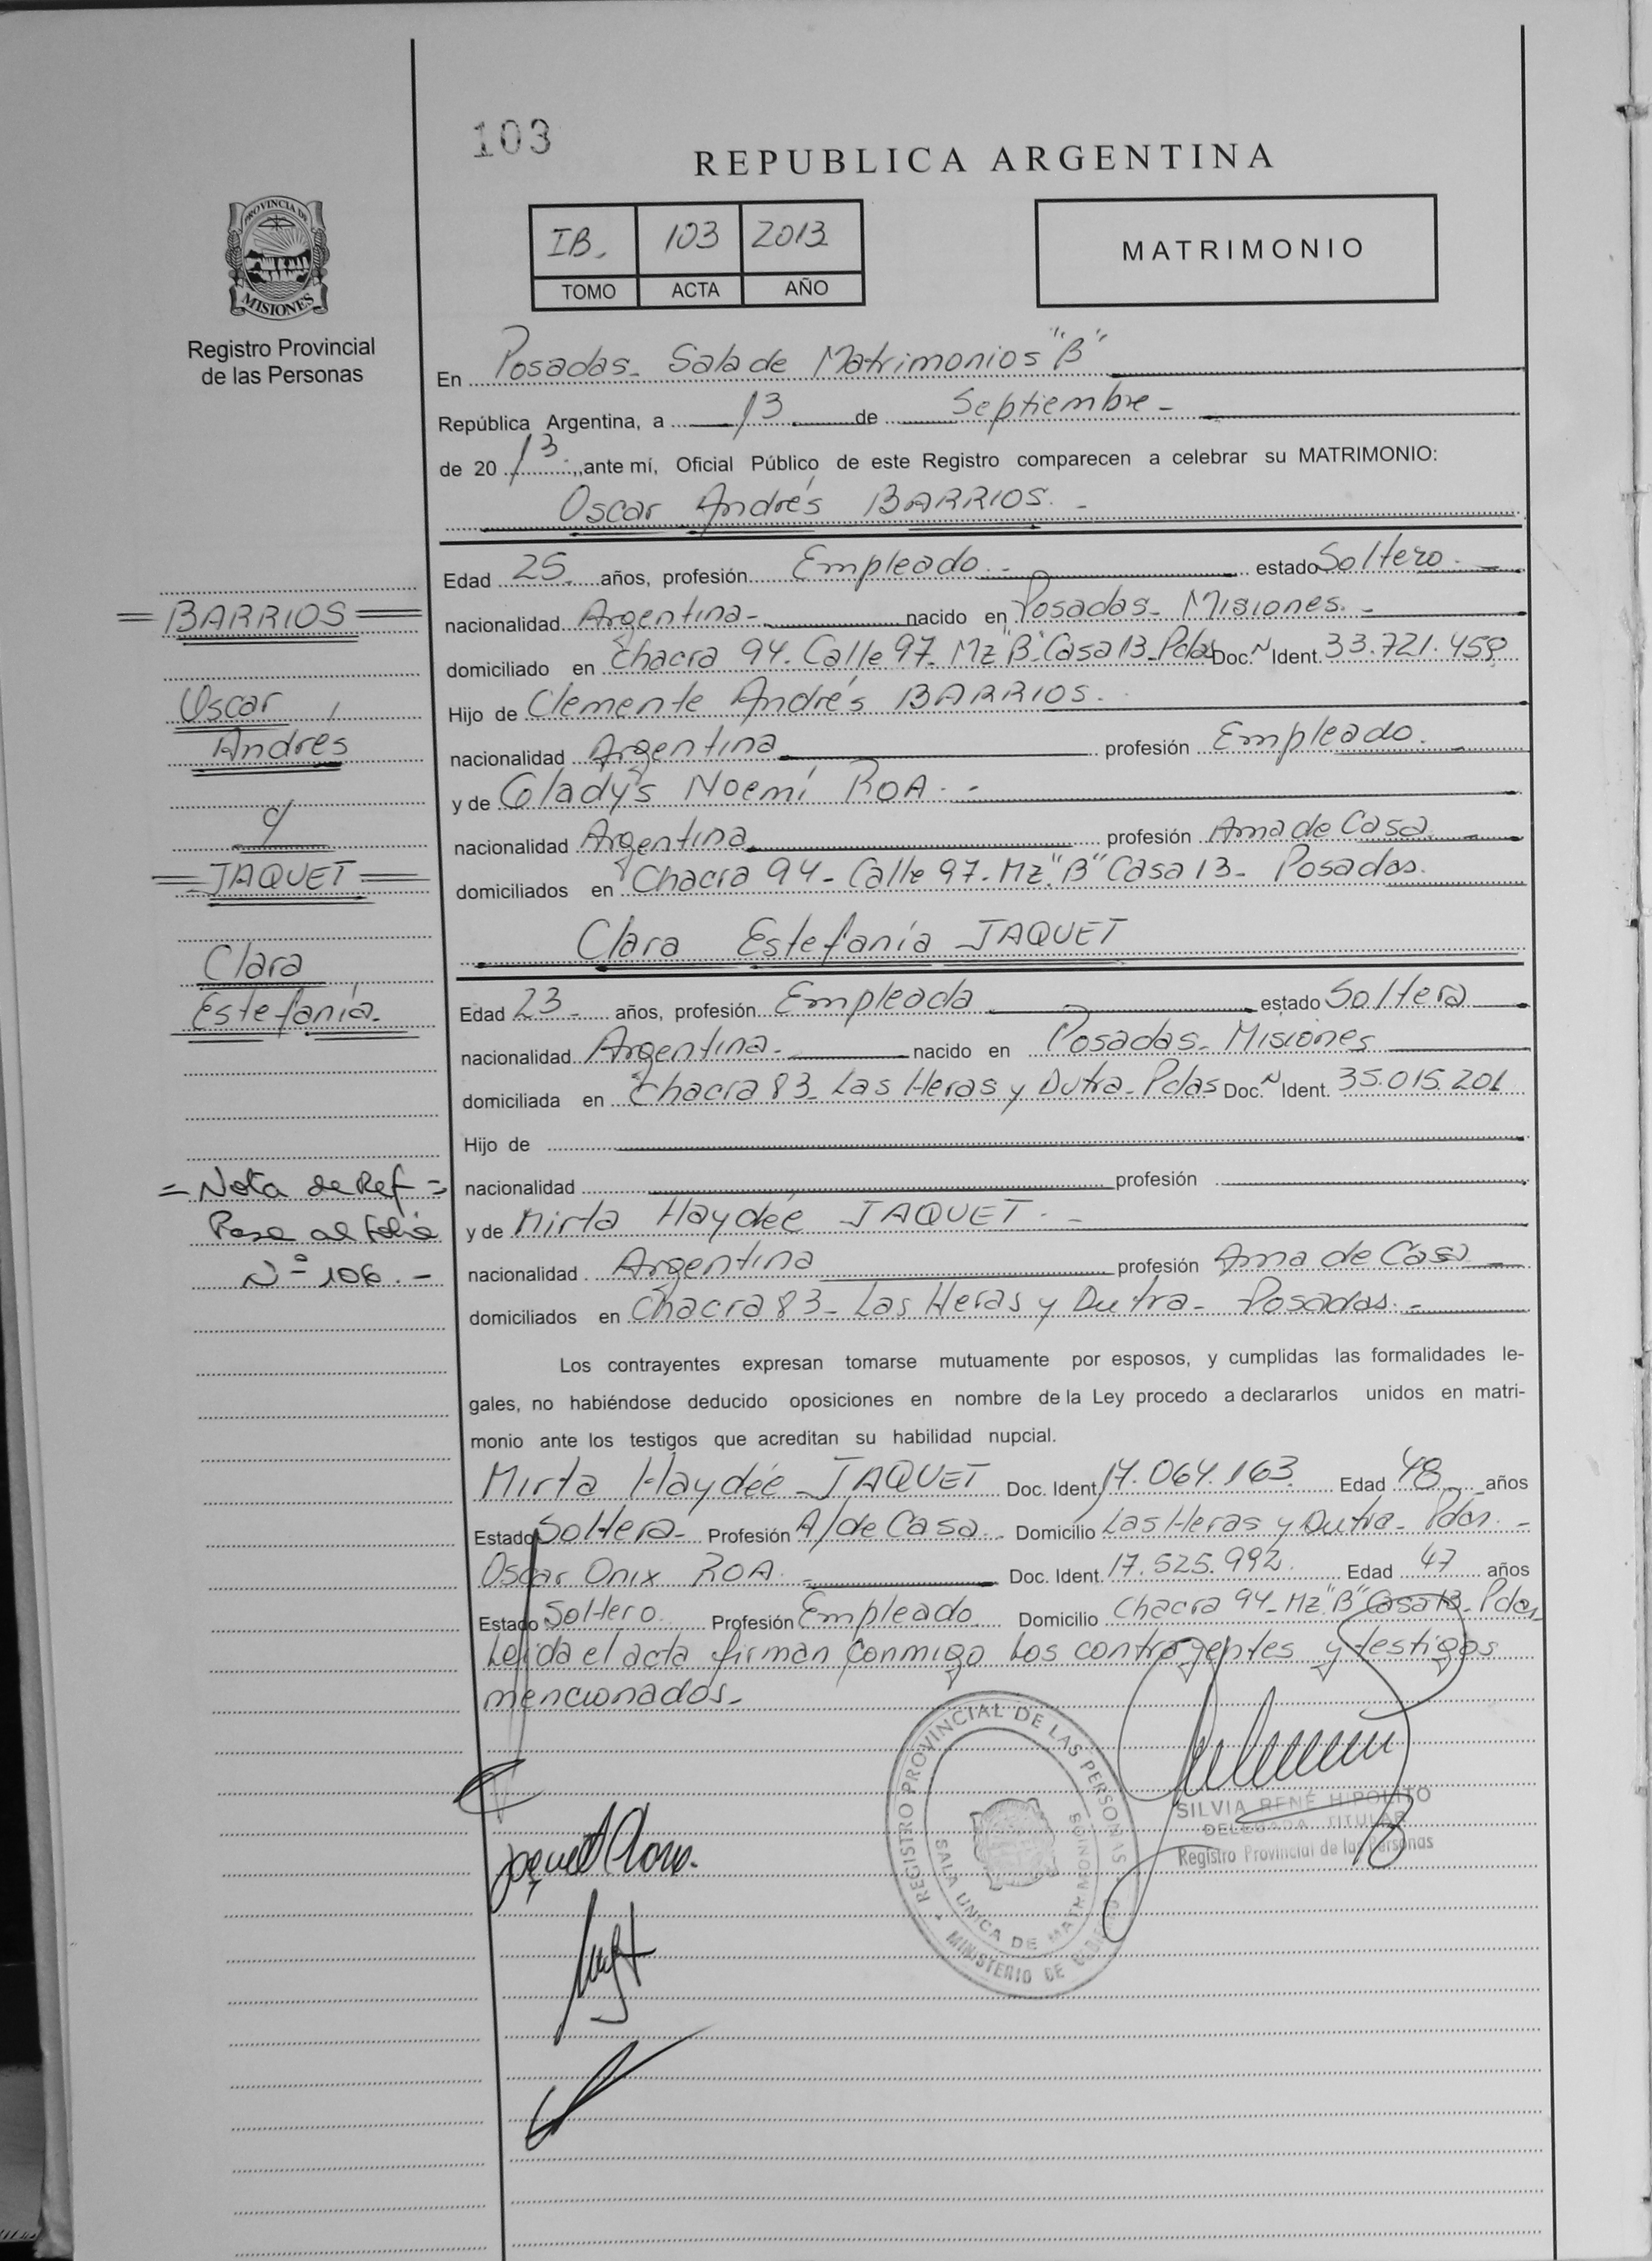 103
REPUBLICA ARGENTINA
IB. 103 2013
TOMO ACTA AÑO
MATRIMONIO
PROVINCIA DE
MISIONES
Registro Provincial
de las Personas
En Posadas- Sala de Matrimonios "B"
República Argentina, a 13 de Septiembre-
de 20 13 ,,ante mí, Oficial Público de este Registro comparecen a celebrar su MATRIMONIO:
Oscar Andrés BARRIOS.-
Edad 25 años, profesión Empleado.- estado Soltero.-
nacionalidad Argentina- nacido en Posadas- Misiones.-
domiciliado en Chacra 94- Calle 97- Mz "B" Casa 13- Pdas Doc. N Ident. 33.721.458
Hijo de Clemente Andrés BARRIOS.
nacionalidad Argentina profesión Empleado.-
y de Gladys Noemí ROA.-
nacionalidad Argentina profesión Ama de Casa-
domiciliados en Chacra 94- Calle 97- Mz. "B" Casa 13- Posadas.
Clara Estefanía JAQUET
Edad 23- años, profesión Empleada estado Soltera
nacionalidad Argentina- nacido en Posadas- Misiones
domiciliada en Chacra 83- Las Heras y Dutra- Pdas Doc. N Ident. 35.015.201
Hijo de
nacionalidad profesión
y de Mirta Haydée JAQUET.-
nacionalidad Argentina profesión Ama de Casa-
domiciliados en Chacra 83- Las Heras y Dutra- Posadas.-
Los contrayentes expresan tomarse mutuamente por esposos, y cumplidas las formalidades le-
gales, no habiéndose deducido oposiciones en nombre de la Ley procedo a declararlos unidos en matri-
monio ante los testigos que acreditan su habilidad nupcial.
Mirta Haydée JAQUET Doc. Ident. 17.064.163. Edad 48 años
Estado Soltera- Profesión A/de Casa- Domicilio Las Heras y Dutra- Pdas.-
Oscar Onix ROA.- Doc. Ident. 17.525.992. Edad 47 años
Estado Soltero. Profesión Empleado. Domicilio Chacra 94- Mz "B" Casa 13- Pdas-
Leída el acta firman conmigo Los contrayentes y testigos
mencionados-
BARRIOS
Oscar
Andrés
c/
JAQUET
Clara
Estefanía-
= Nota de Ref =
Pasa al folio
Nº 106.-
REGISTRO PROVINCIAL DE LAS PERSONAS
SALA UNICA DE MATRIMONIOS
MINISTERIO DE
SILVIA RENÉ HIPOLITO
DELEGADA TITULAR
Registro Provincial de las Personas
Jaquet Clara.